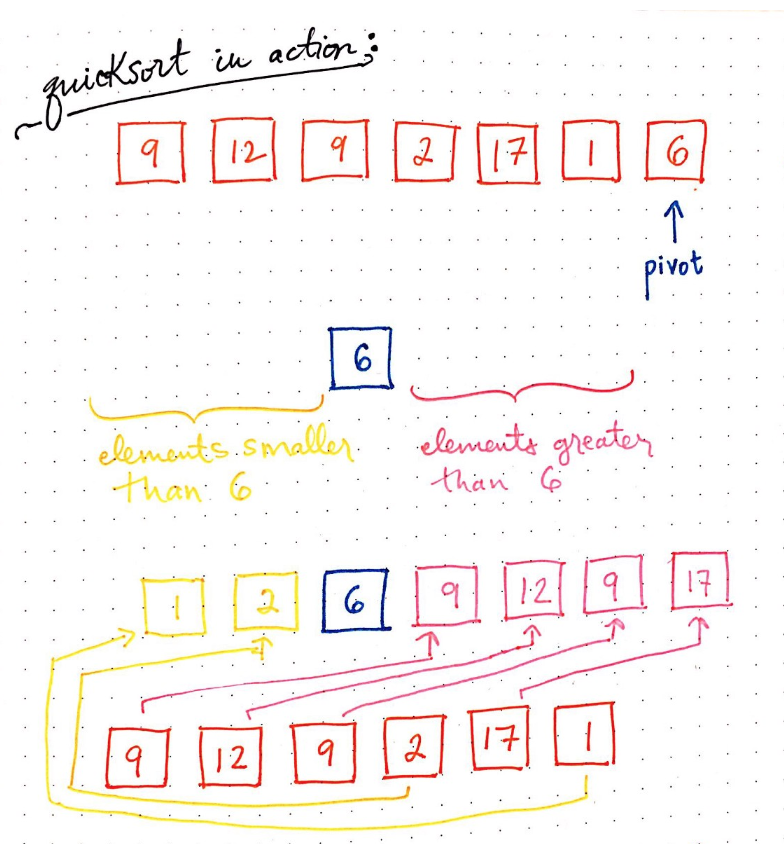 quicksort in action:
9 12 9 2 17 1 6
pivot
6
elements smaller
than 6
elements greater
than 6
1 2 6 9 12 9 17
9 12 9 2 17 1